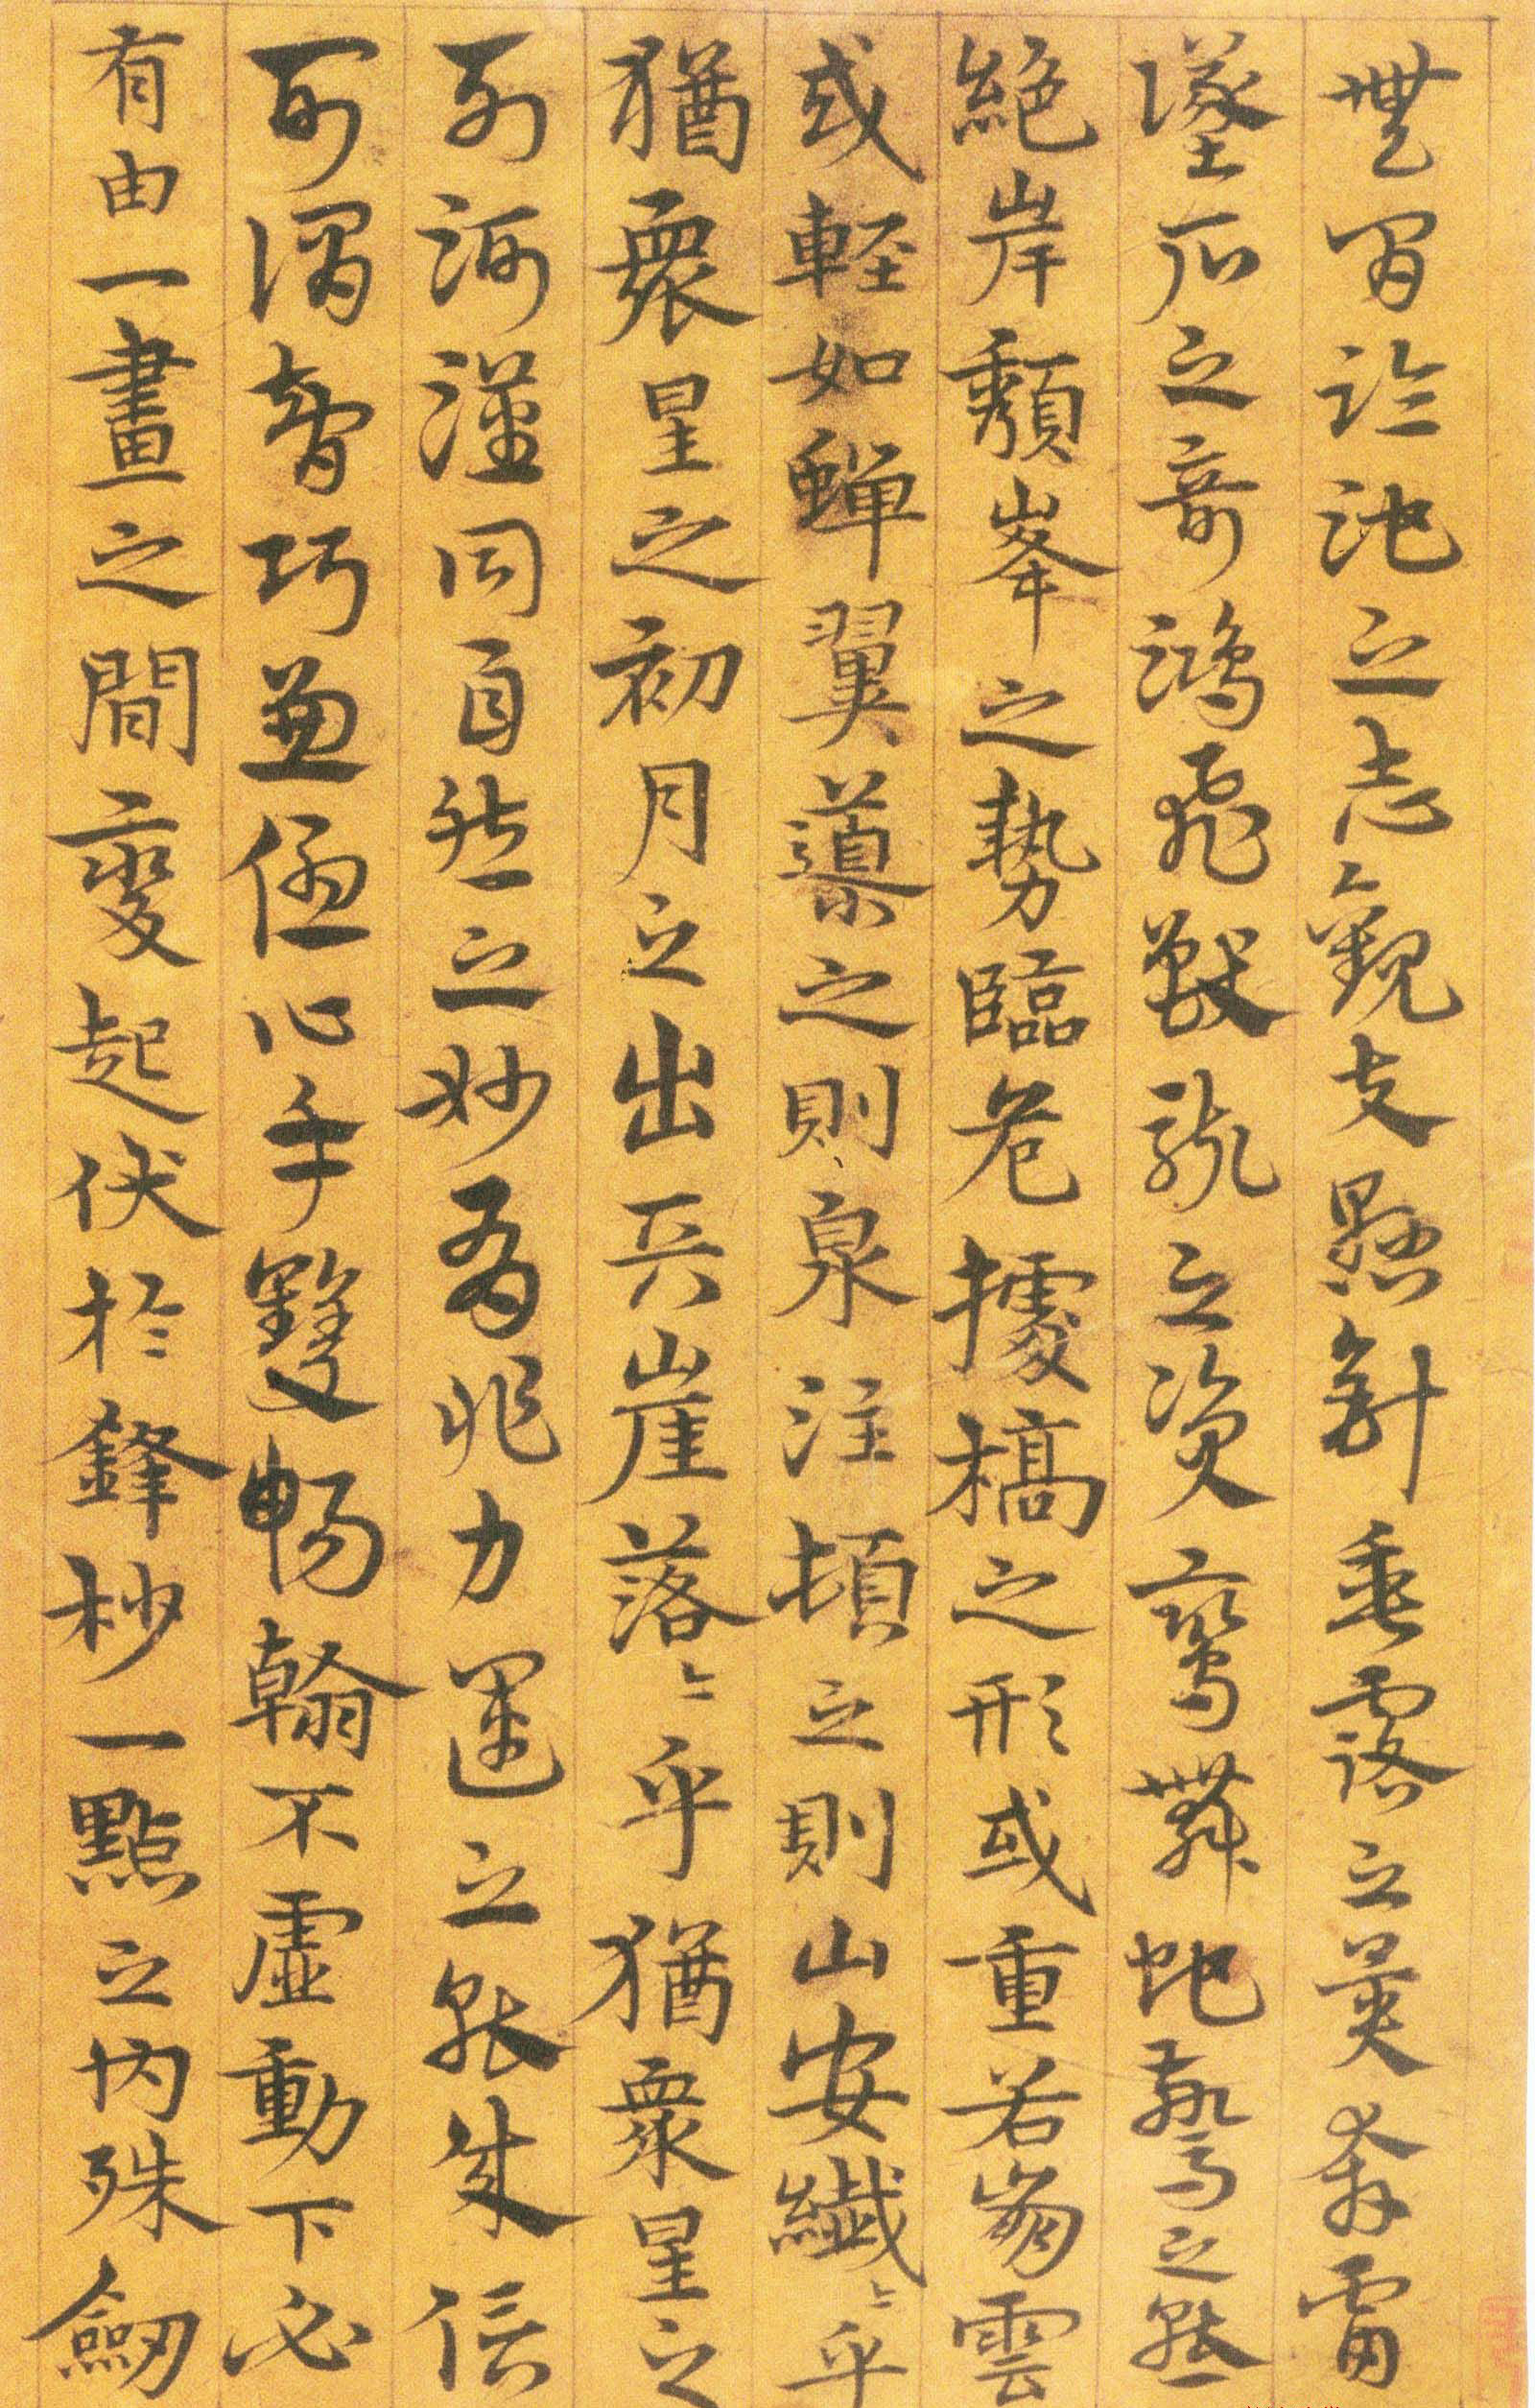 無間臨池之志觀夫懸針垂露之異奔雷
墜石之奇鴻飛獸駭之資鸞舞蛇驚之態
絶岸頽峯之勢臨危據槁之形或重若崩雲
或軽如蟬翼導之則泉注頓之則山安纖〻乎
猶衆星之初月之出天崖落〻乎猶衆星之
列河漢同自然之妙有非力運之能成信
可謂智巧兼優心手雙暢翰不虛動下必
有由一畫之間變起伏於鋒杪一點之內殊劒